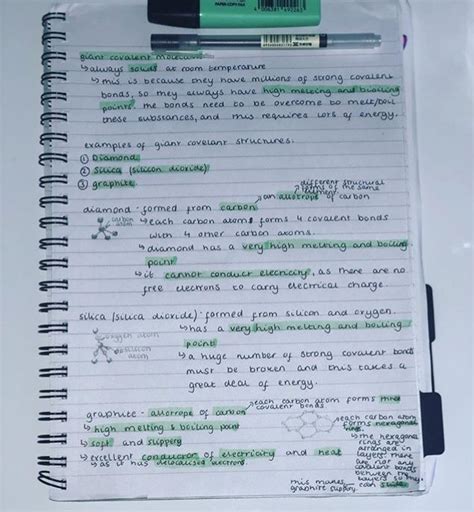 PAPER-COPY-FAX
4 006381 492263
giant covalent molecules
↳ always solids at room temperature
↳ this is because they have millions of strong covalent
bonds, so they always have high melting and boiling
points. the bonds need to be overcome to melt/boil
these substances, and this requires lots of energy.
examples of giant covelant structures.
① Diamond
② Silica (silicon dioxide)
③ graphite
different structural
forms of the same
element.
an allotrope of carbon
diamond · formed from carbon
carbon
atom
↳ each carbon atom forms 4 covalent bonds
with 4 other carbon atoms.
↳ diamond has a very high melting and boiling
point
↳ it cannot conduct electricity, as there are no
free electrons to carry electrical charge.
silica (silica dioxide) · formed from silicon and oxygen.
oxygen atom
silicon
atom
↳ has a very high melting and boiling
point
↳ a huge number of strong covalent bonds
must be broken and this takes a
great deal of energy.
each carbon atom forms three
covalent bonds
graphite · allotrope of carbon
↳ high melting & boiling point
↳ soft and slippery
↳ excellent conductor of electricity and heat
↳ as it has delocalised electrons.
each carbon atom
forms hexagonal
rings.
↳ the hexagonal
rings are
arranged in
layers. there
are not any
covalent bonds
between the
layers so they
can slide
this makes
graphite slippery.